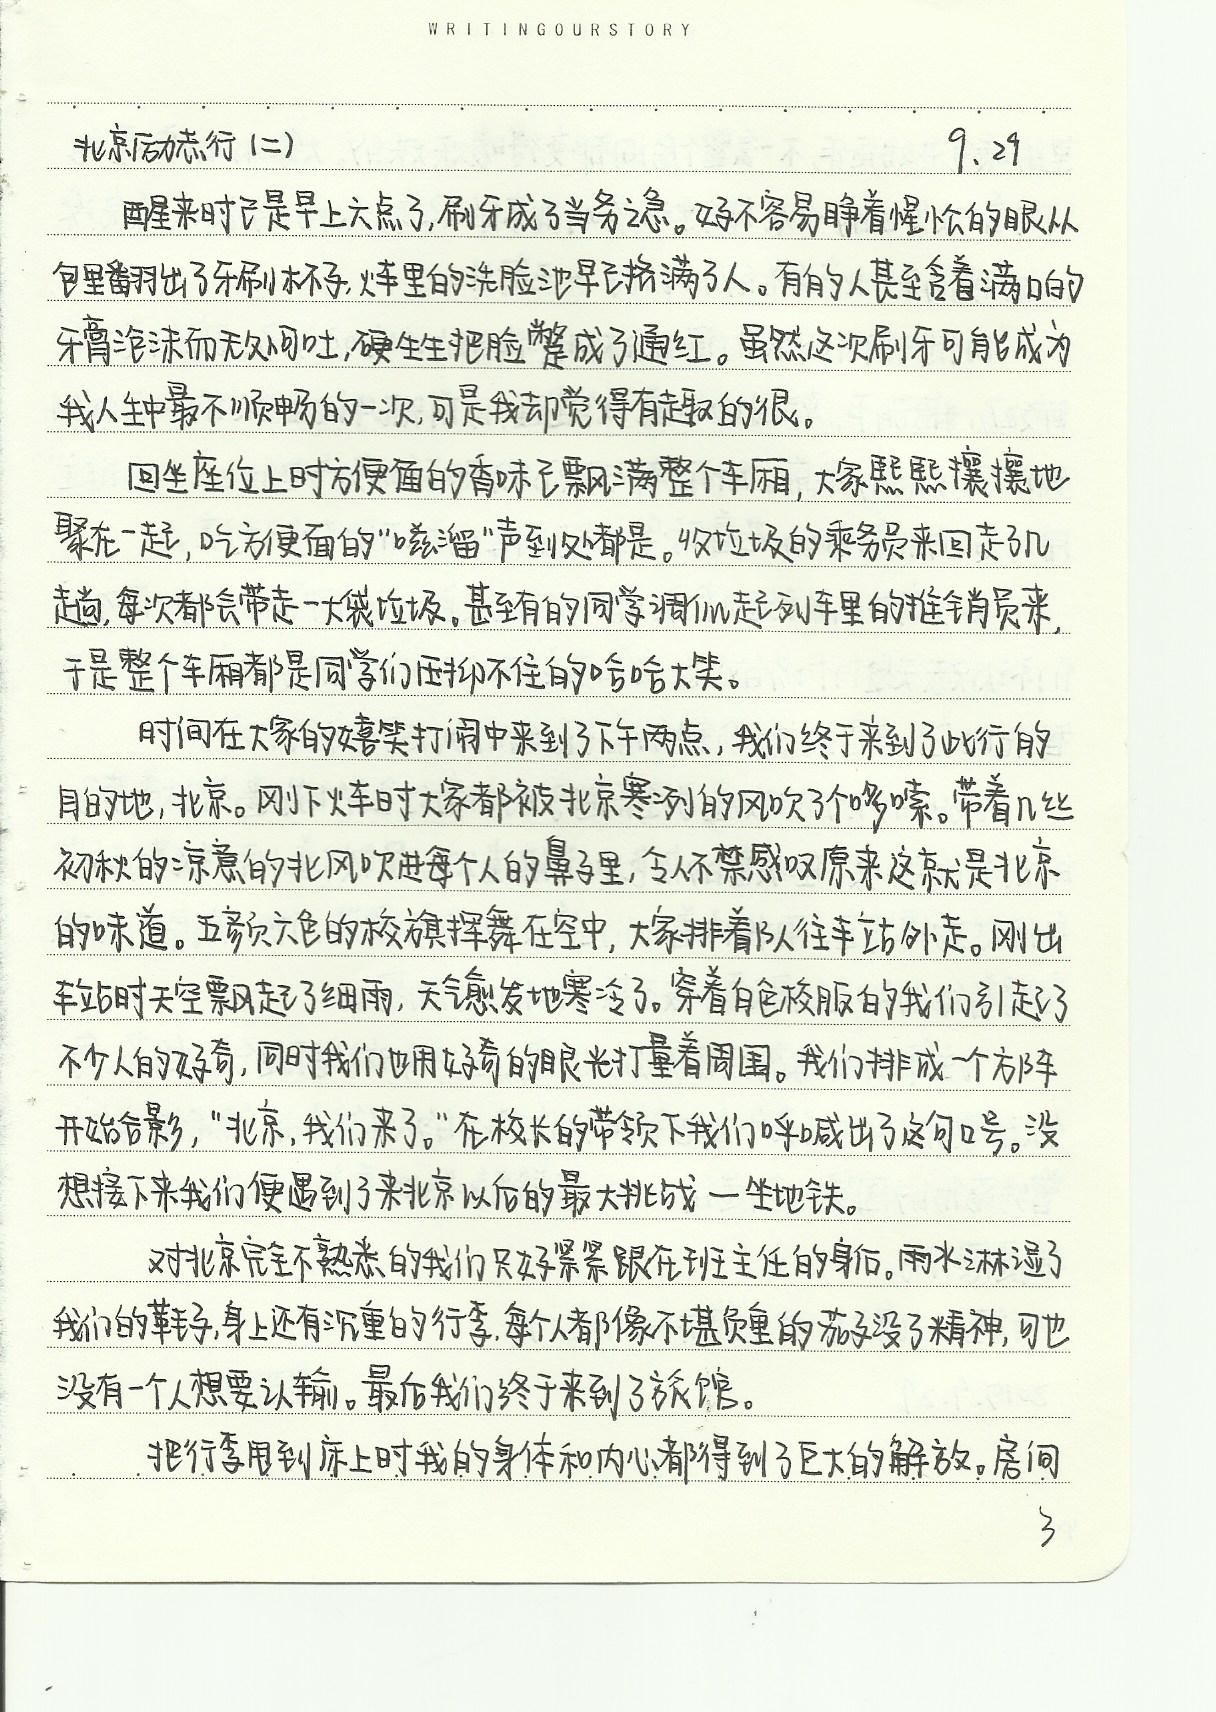 WRITINGOURSTORY
北京励志行(二) 9.29
醒来时已是早上六点了,刷牙成了当务之急。好不容易睁着惺忪的眼从
包里翻出了牙刷杯子,火车里的洗脸池早已挤满了人。有的人甚至含着满口的
牙膏泡沫而无处可吐,硬生生把脸憋成了通红。虽然这次刷牙可能成为
我人生中最不顺畅的一次,可是我却觉得有趣的很。
回坐座位上时方便面的香味已飘满整个车厢,大家熙熙攘攘地
聚在一起,吃方便面的“嗞溜”声到处都是。收垃圾的乘务员来回走了几
趟,每次都会带走一大袋垃圾。甚至有的同学调侃起列车里的推销员来,
于是整个车厢都是同学们压抑不住的哈哈大笑。
时间在大家的嬉笑打闹中来到了下午两点,我们终于来到了此行的
目的地,北京。刚下火车时大家都被北京寒冽的风吹了个哆嗦。带着几丝
初秋的凉意的北风吹进每个人的鼻子里,令人不禁感叹原来这就是北京
的味道。五颜六色的校旗挥舞在空中,大家排着队往车站外走。刚出
车站时天空飘起了细雨,天气愈发地寒冷了。穿着白色校服的我们引起了
不少人的好奇,同时我们也用好奇的眼光打量着周围。我们排成一个方阵
开始合影,“北京,我们来了。”在校长的带领下我们呼喊出了这句口号。没
想接下来我们便遇到了来北京以后的最大挑战—坐地铁。
对北京完全不熟悉的我们只好紧紧跟在班主任的身后。雨水淋湿了
我们的鞋子,身上还有沉重的行李,每个人都像不堪负重的茄子没了精神,可也
没有一个人想要认输。最后我们终于来到了旅馆。
把行李甩到床上时我的身体和内心都得到了巨大的解放。房间
3